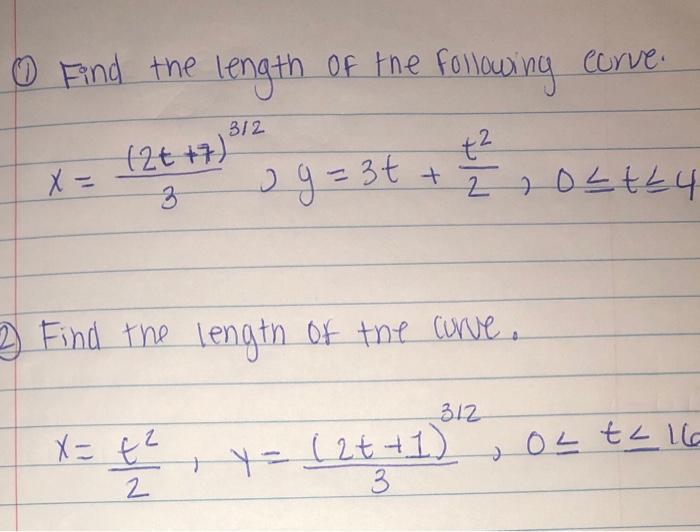 ① Find the length of the following curve.
x = (2t+7)^3/2 / 3 , y = 3t + t^2/2 , 0 ≤ t ≤ 4
② Find the length of the curve.
x = t^2/2 , y = (2t+1)^3/2 / 3 , 0 ≤ t ≤ 16